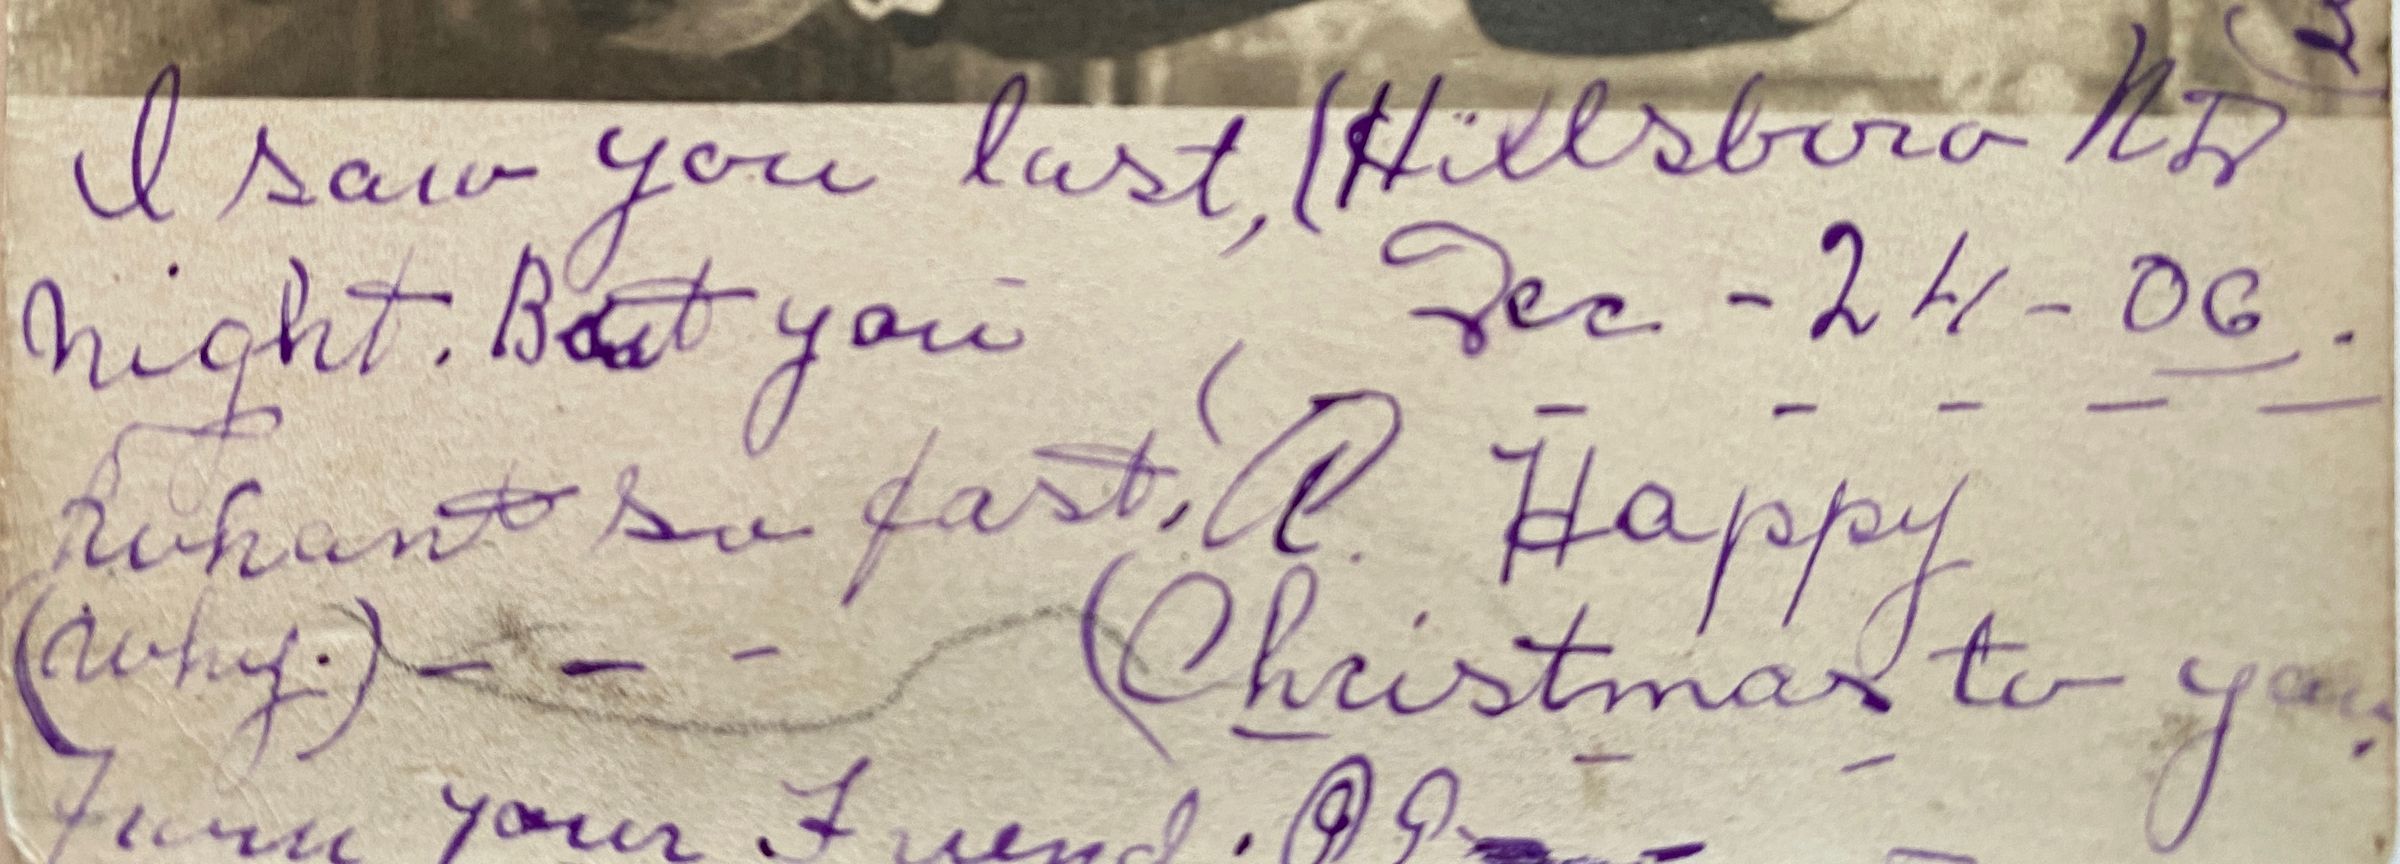 I saw you last, (Hillsboro ND
night. But you Dec - 24 - 06.
whant so fast, A. Happy
(why.) - - - (Christmas to you.
From your Friend.